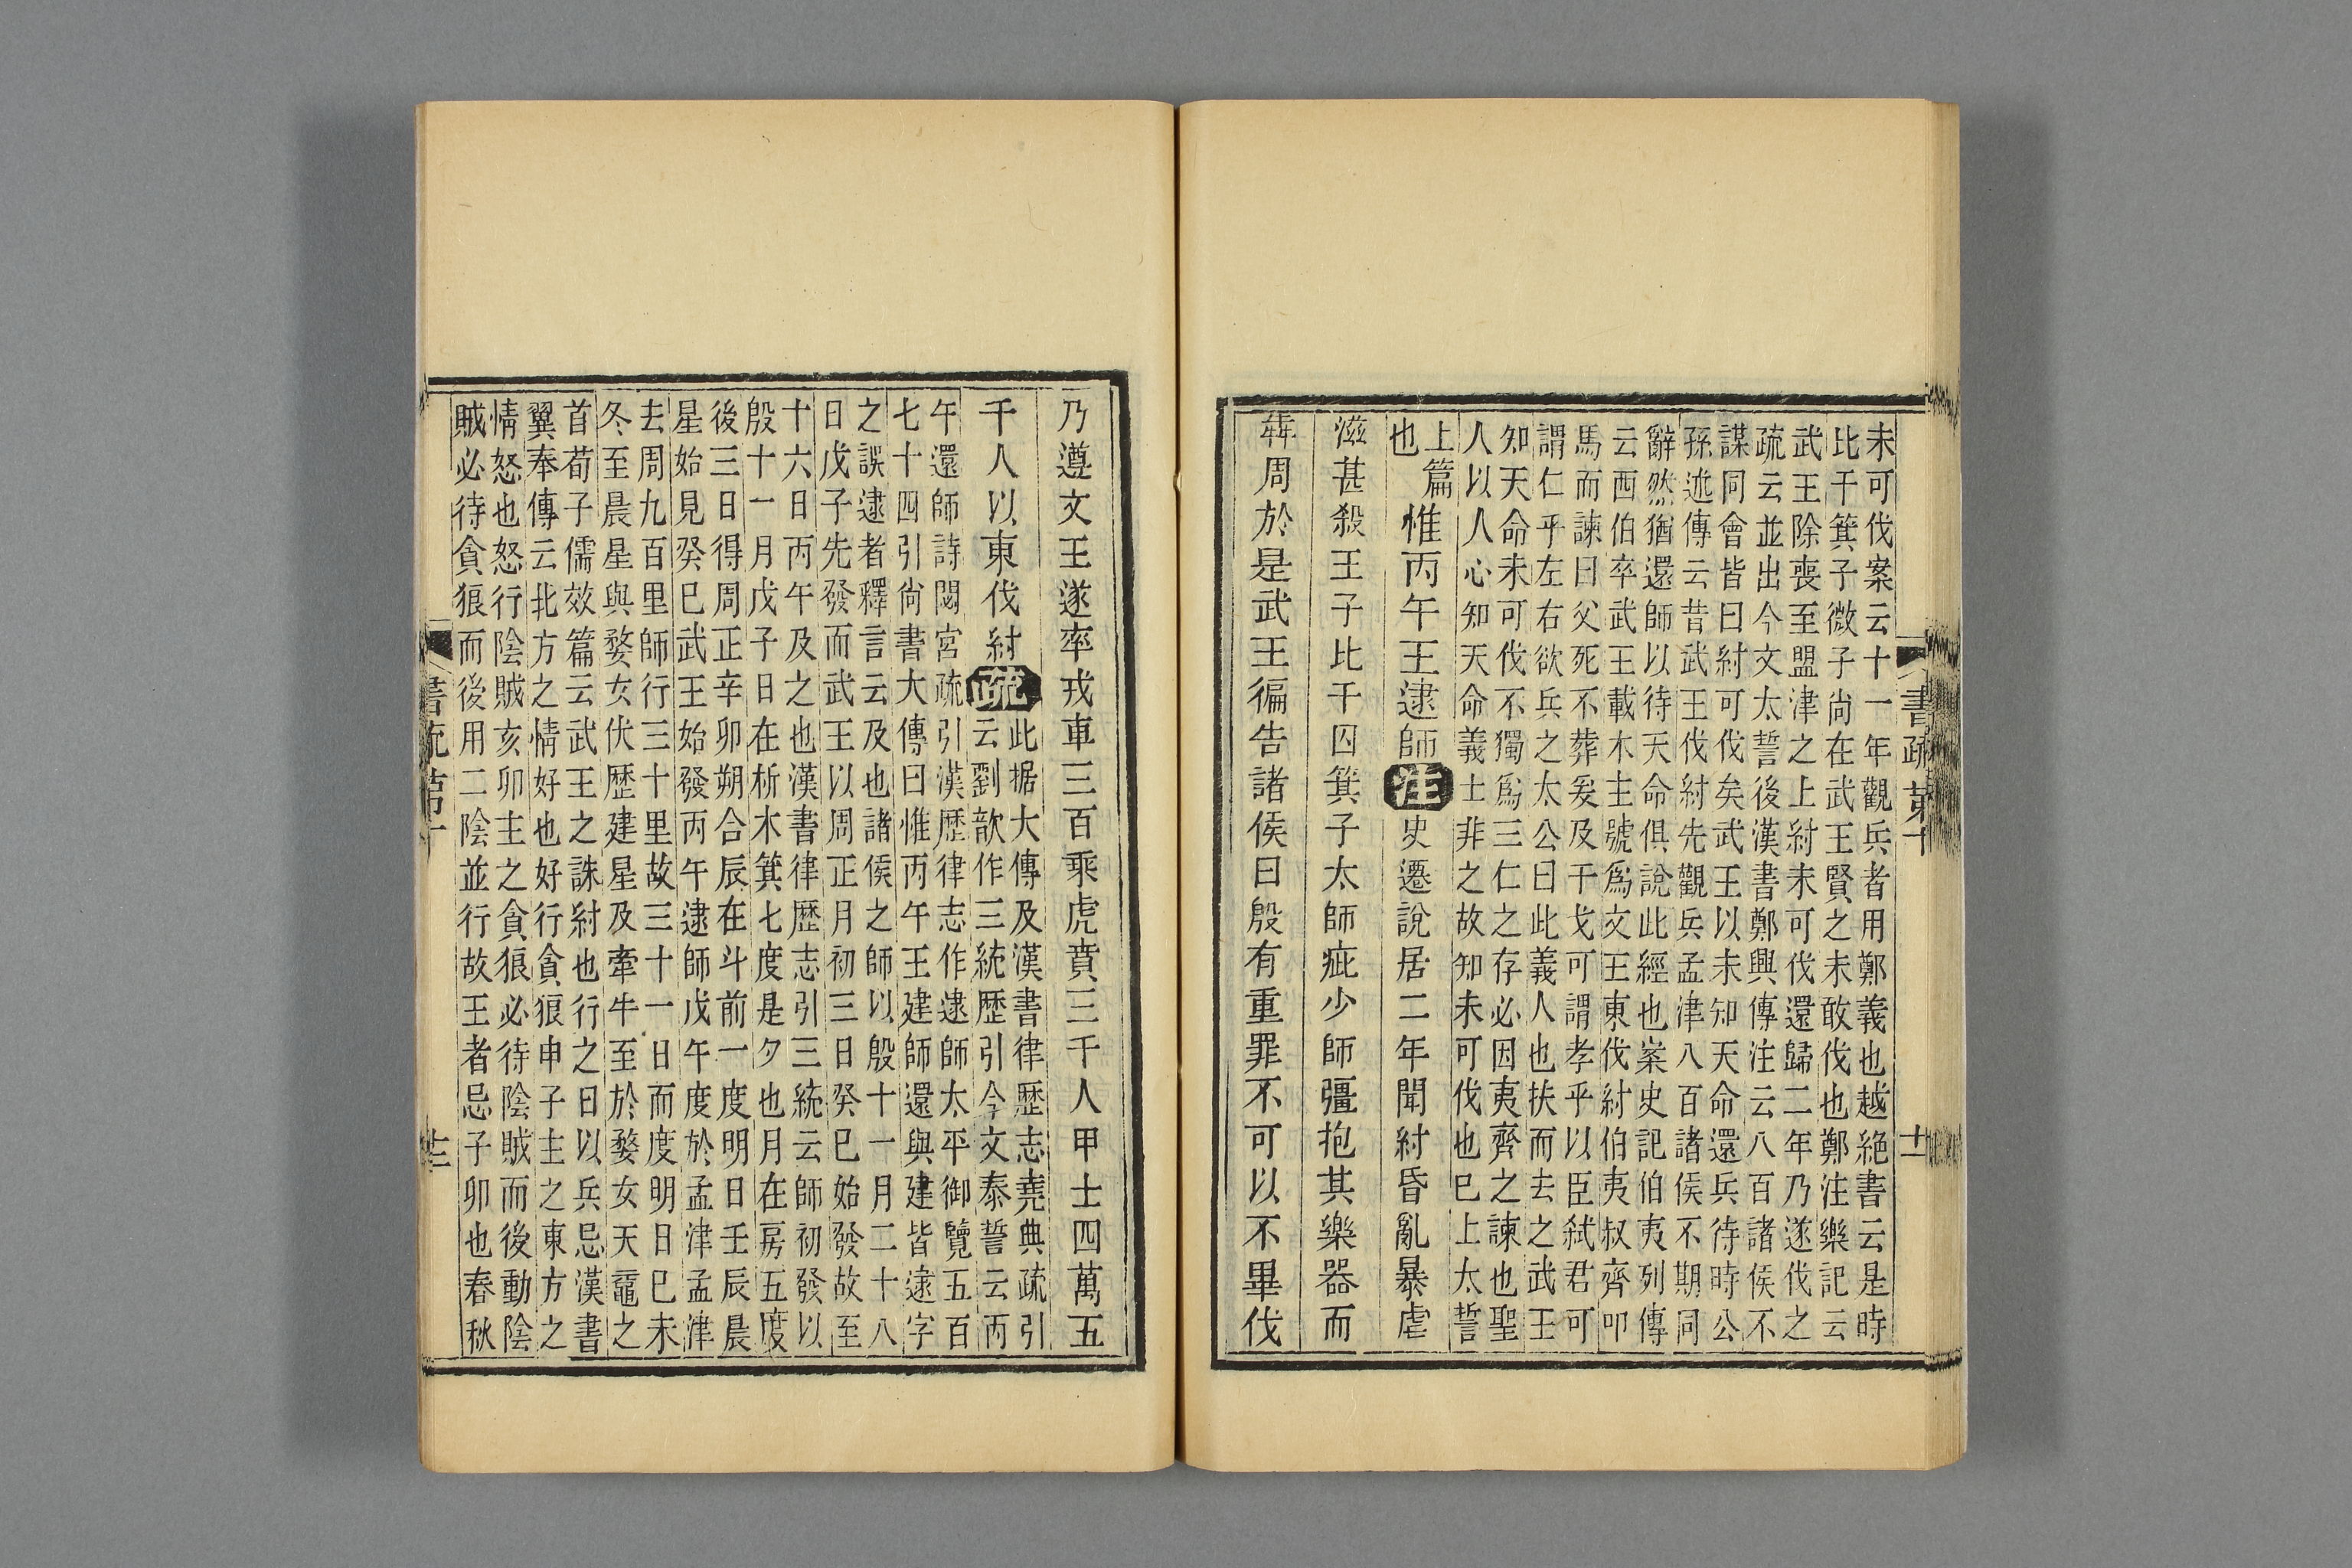 書疏第十
十一
未可伐案云十一年觀兵者用鄭義也越絕書云是時
比干箕子微子尚在武王賢之未敢伐也鄭注樂記云
武王除喪至盟津之上紂未可伐還歸二年乃遂伐之
疏云並出今文太誓後漢書鄭興傳注云八百諸侯不
謀同會皆曰紂可伐矣武王以未知天命還兵待時公
孫述傳云昔武王伐紂先觀兵孟津八百諸侯不期同
辭然猶還師以待天命俱說此經也案史記伯夷列傳
云西伯卒武王載木主號爲文王東伐紂伯夷叔齊叩
馬而諫曰父死不葬爰及干戈可謂孝乎以臣弑君可
謂仁乎左右欲兵之太公曰此義人也扶而去之武王
知天命未可伐不獨爲三仁之存必因夷齊之諫也聖
人以人心知天命義士非之故知未可伐也巳上太誓
上篇
也
惟丙午王逮師注史遷說居二年聞紂昏亂暴虐
滋甚殺王子比干囚箕子太師疵少師彊抱其樂器而
犇周於是武王徧告諸侯曰殷有重罪不可以不畢伐
乃遵文王遂率戎車三百乘虎賁三千人甲士四萬五
千人以東伐紂疏
此据大傳及漢書律歷志堯典疏引
云劉歆作三統歷引今文泰誓云丙
午還師詩閟宮疏引漢歷律志作逮師太平御覽五百
七十四引尙書大傳曰惟丙午王建師還與建皆逮字
之誤逮者釋言云及也諸侯之師以殷十一月二十八
日戊子先發而武王以周正月初三日癸巳始發故至
十六日丙午及之也漢書律歷志引三統云師初發以
殷十一月戊子日在析木箕七度是夕也月在房五度
後三日得周正辛卯朔合辰在斗前一度明日壬辰晨
星始見癸巳武王始發丙午逮師戊午度於孟津孟津
去周九百里師行三十里故三十一日而度明日巳未
冬至晨星與婺女伏歷建星及牽牛至於婺女天黿之
首荀子儒效篇云武王之誅紂也行之日以兵忌漢書
翼奉傳云北方之情好也好行貪狼申子主之東方之
情怒也怒行陰賊亥卯主之貪狼必待陰賊而後動陰
賊必待貪狼而後用二陰並行故王者忌子卯也春秋
書疏第十